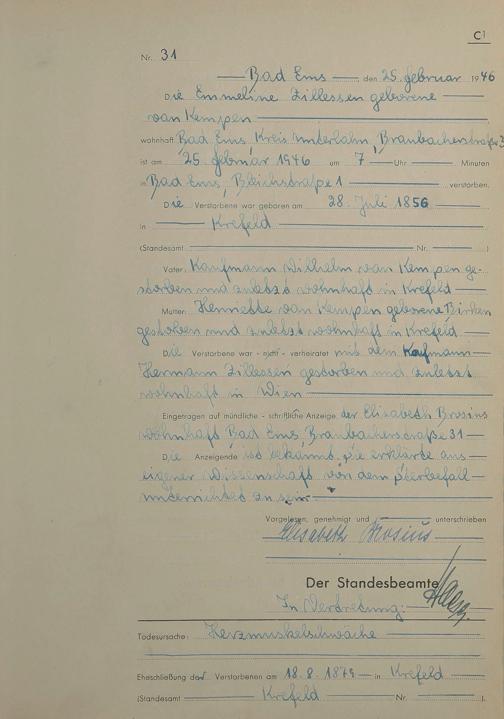 C1
Nr. 31
Bad Ems, den 25. februar 1946
Die Emmeline Zillessen geborene
van Kempen
wohnhaft Bad Ems, Kreis Unterlahn, Braubacherstraße
ist am 25. februar 1946 um 7 Uhr Minuten
in Bad Ems, Bleichstraße 1 verstorben.
Die Verstorbene war geboren am 28. Juli 1856
in Krefeld
(Standesamt Nr. )
Vater: Kaufmann Wilhelm van Kempen ge-
storben und zuletzt wohnhaft in Krefeld
Mutter: Henriette van Kempen geborene Birken
gestorben und zuletzt wohnhaft in Krefeld
Die Verstorbene war - nicht - verheiratet mit dem Kaufmann
Hermann Zillessen gestorben und zuletzt
wohnhaft in Wien
Eingetragen auf mündliche - schriftliche Anzeige der Elisabeth Brosius
wohnhaft Bad Ems, Braubacherstraße 31
Die Anzeigende ist bekannt. Sie erklärte aus
eigener Wissenschaft von dem Sterbefall
unterrichtet zu sein
Vorgelesen, genehmigt und unterschrieben
Elisabeth Brosius
Der Standesbeamte
In Vertretung:
Todesursache: Herzmuskelschwäche
Eheschließung der Verstorbenen am 18.8.1879 in Krefeld
(Standesamt Krefeld Nr. ).